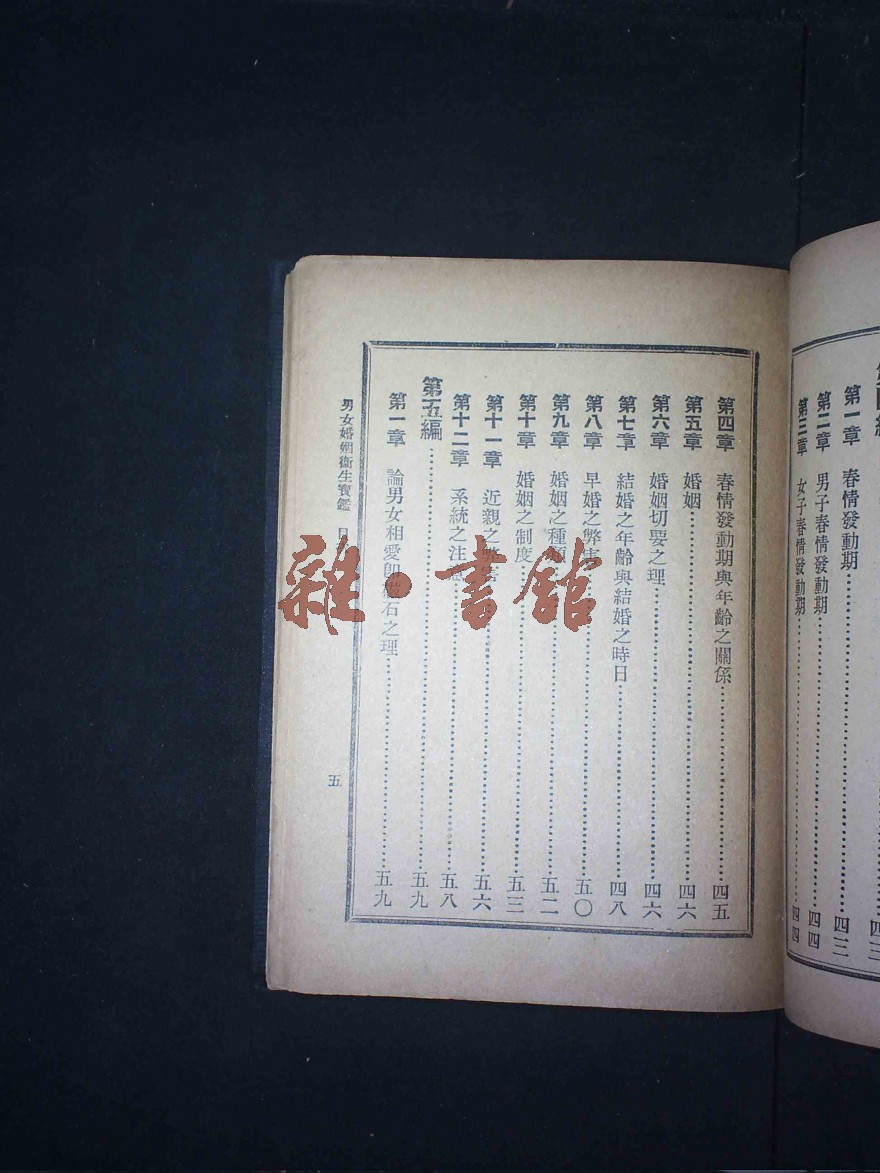 第一章 春情發動期 四三
第二章 男子春情發動期 四四
第三章 女子春情發動期 四四
第四章 春情發動期與年齡之關係 四五
第五章 婚姻 四六
第六章 婚姻切要之理 四六
第七章 結婚之年齡與結婚之時日 四八
第八章 早婚之弊害 五〇
第九章 婚姻之種類 五二
第十章 婚姻之制度 五三
第十一章 近親之弊害 五六
第十二章 系統之注意 五八
第五編 五九
第一章 論男女相愛卽磁石之理 五九
男女婚姻衞生寶鑑 目
五
雜·書館